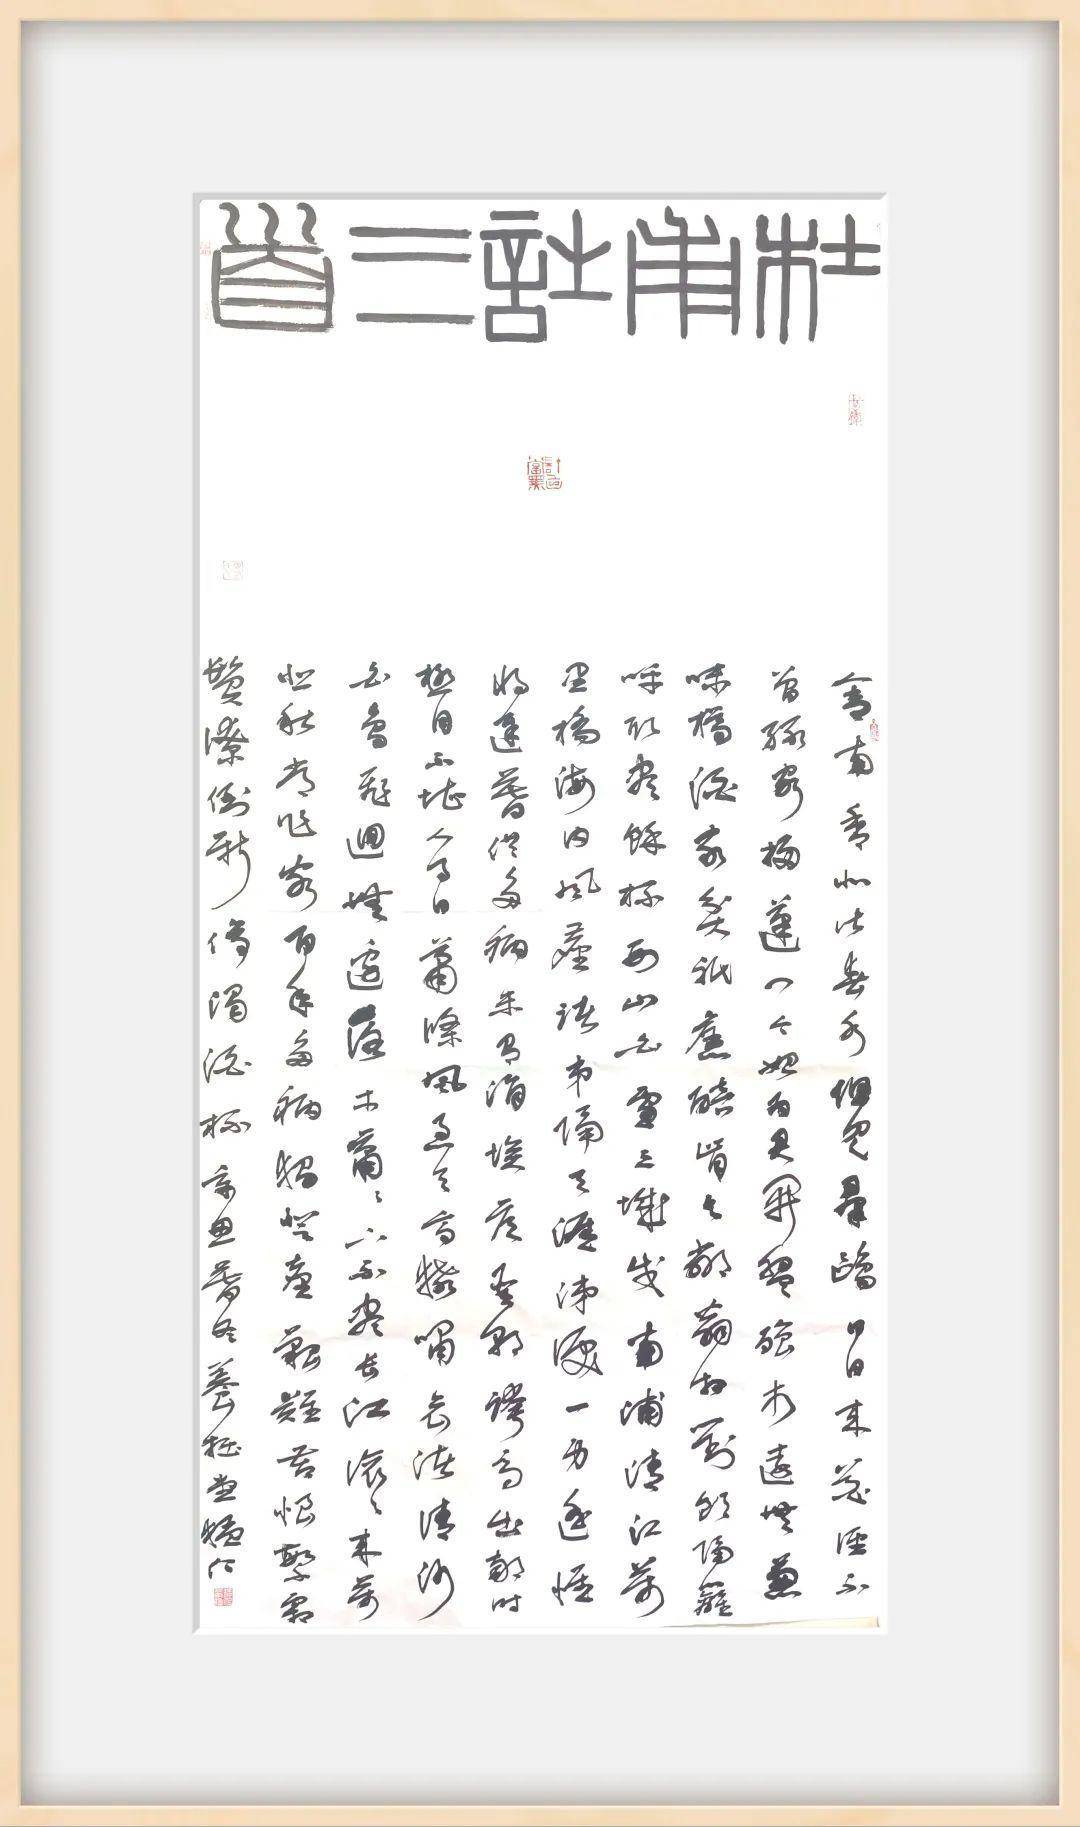 杜甫詩三首
舍南舍北皆春水但見羣鷗日日來花徑不
曾緣客掃蓬門今始為君開盤飧市遠無兼
味樽酒家貧祇舊醅肯與鄰翁相對飲隔籬
呼取盡餘杯西山白雪三城戍南浦清江萬
里橋海內風塵諸弟隔天涯涕淚一身遙惟
將遲暮供多病未有涓埃答聖朝跨馬出郊時
極目不堪人事日蕭條風急天高猿嘯哀渚清沙
白鳥飛迴無邊落木蕭〻下不盡長江滾〻來萬
悲秋常作客百年多病獨登臺艱難苦恨繁霜
鬢潦倒新停濁酒杯辛丑暮冬養拙堂